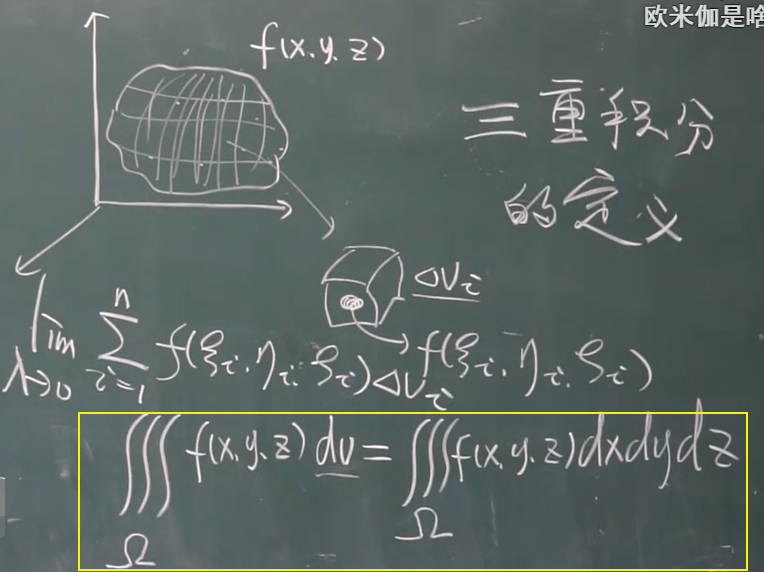 欧米伽是啥
f(x,y,z)
三重积分
的定义
ΔVᵢ
lim λ→0 ∑ i=1 n f(ξᵢ,ηᵢ,ζᵢ)ΔVᵢ
f(ξᵢ,ηᵢ,ζᵢ)
∭Ω f(x,y,z)dv=∭Ω f(x,y,z)dxdydz